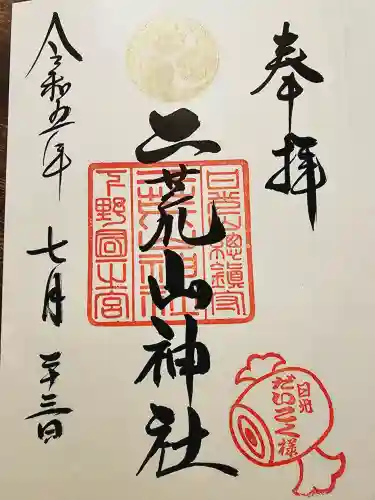 奉拝
日光山總鎮守
二荒山神社
下野國一之宮
二荒山神社
令和五年 七月 二十三日
日光
だいこく様